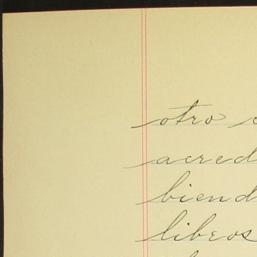 otro
acred
biend
libros